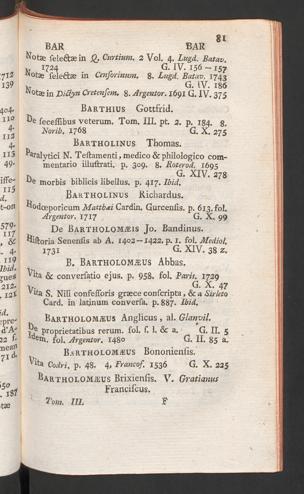 81
BAR BAR
Notæ selectæ in Q. Curtium. 2 Vol. 4. Lugd. Batav.
1724 G. IV. 156 — 157
Notæ selectæ in Censorinum. 8. Lugd. Batav. 1743
G. IV. 186
Notæ in Dictyn Cretensem. 8. Argentor. 1691 G. IV. 375
BARTHIUS Gottfrid.
De secessibus veterum. Tom. III. pt. 2. p. 184. 8.
Norib. 1768 G. X. 275
BARTHOLINUS Thomas.
Paralytici N. Testamenti, medico & philologico com-
mentario illustrati. p. 309. 8. Roterod. 1695
G. XIV. 278
De morbis biblicis libellus. p. 417. Ibid.
BARTHOLINUS Richardus.
Hodœporicum Matthæi Cardin. Gurcensis. p. 613. fol.
Argentor. 1717 G. X. 99
De BARTHOLOMÆIS Jo. Bandinus.
Historia Senensis ab A. 1402–1422. p. 1. fol. Mediol.
1731 G. XIV. 38 z.
B. BARTHOLOMÆUS Abbas.
Vita & conversatio ejus. p. 958. fol. Paris. 1729
G. X. 47
Vita S. Nili confessoris græce conscripta, & a Sirleto
Card. in latinum conversa. p. 887. Ibid.
BARTHOLOMÆUS Anglicus, al. Glanvil.
De proprietatibus rerum. fol. s. l. & a. G. II. 5
Idem. fol. Argentor. 1480 G. II. 85 a.
BARTHOLOMÆUS Bononiensis.
Vita Codri. p. 48. 4. Francof. 1536 G. X. 225
BARTHOLOMÆUS Brixiensis. V. Gratianus
Franciscus.
Tom. III. F